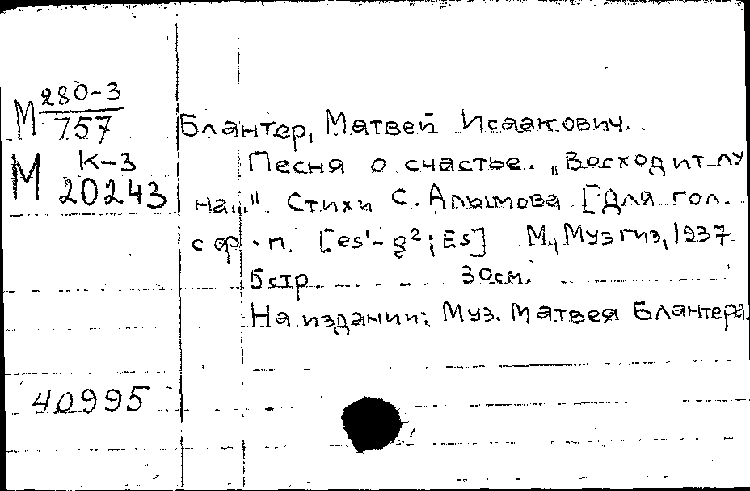 М 280-3
757
М К-3
20243
Блантер, Матвей Исаакович.
Песня о счастье. „Восходит лу
на..." Стихи С. Алымова [Для гол.
с ф.-п. [es'-g²; Es] М., Музгиз, 1937
5 стр. 30см.
На издании: Муз. Матвея Блантера.
40995